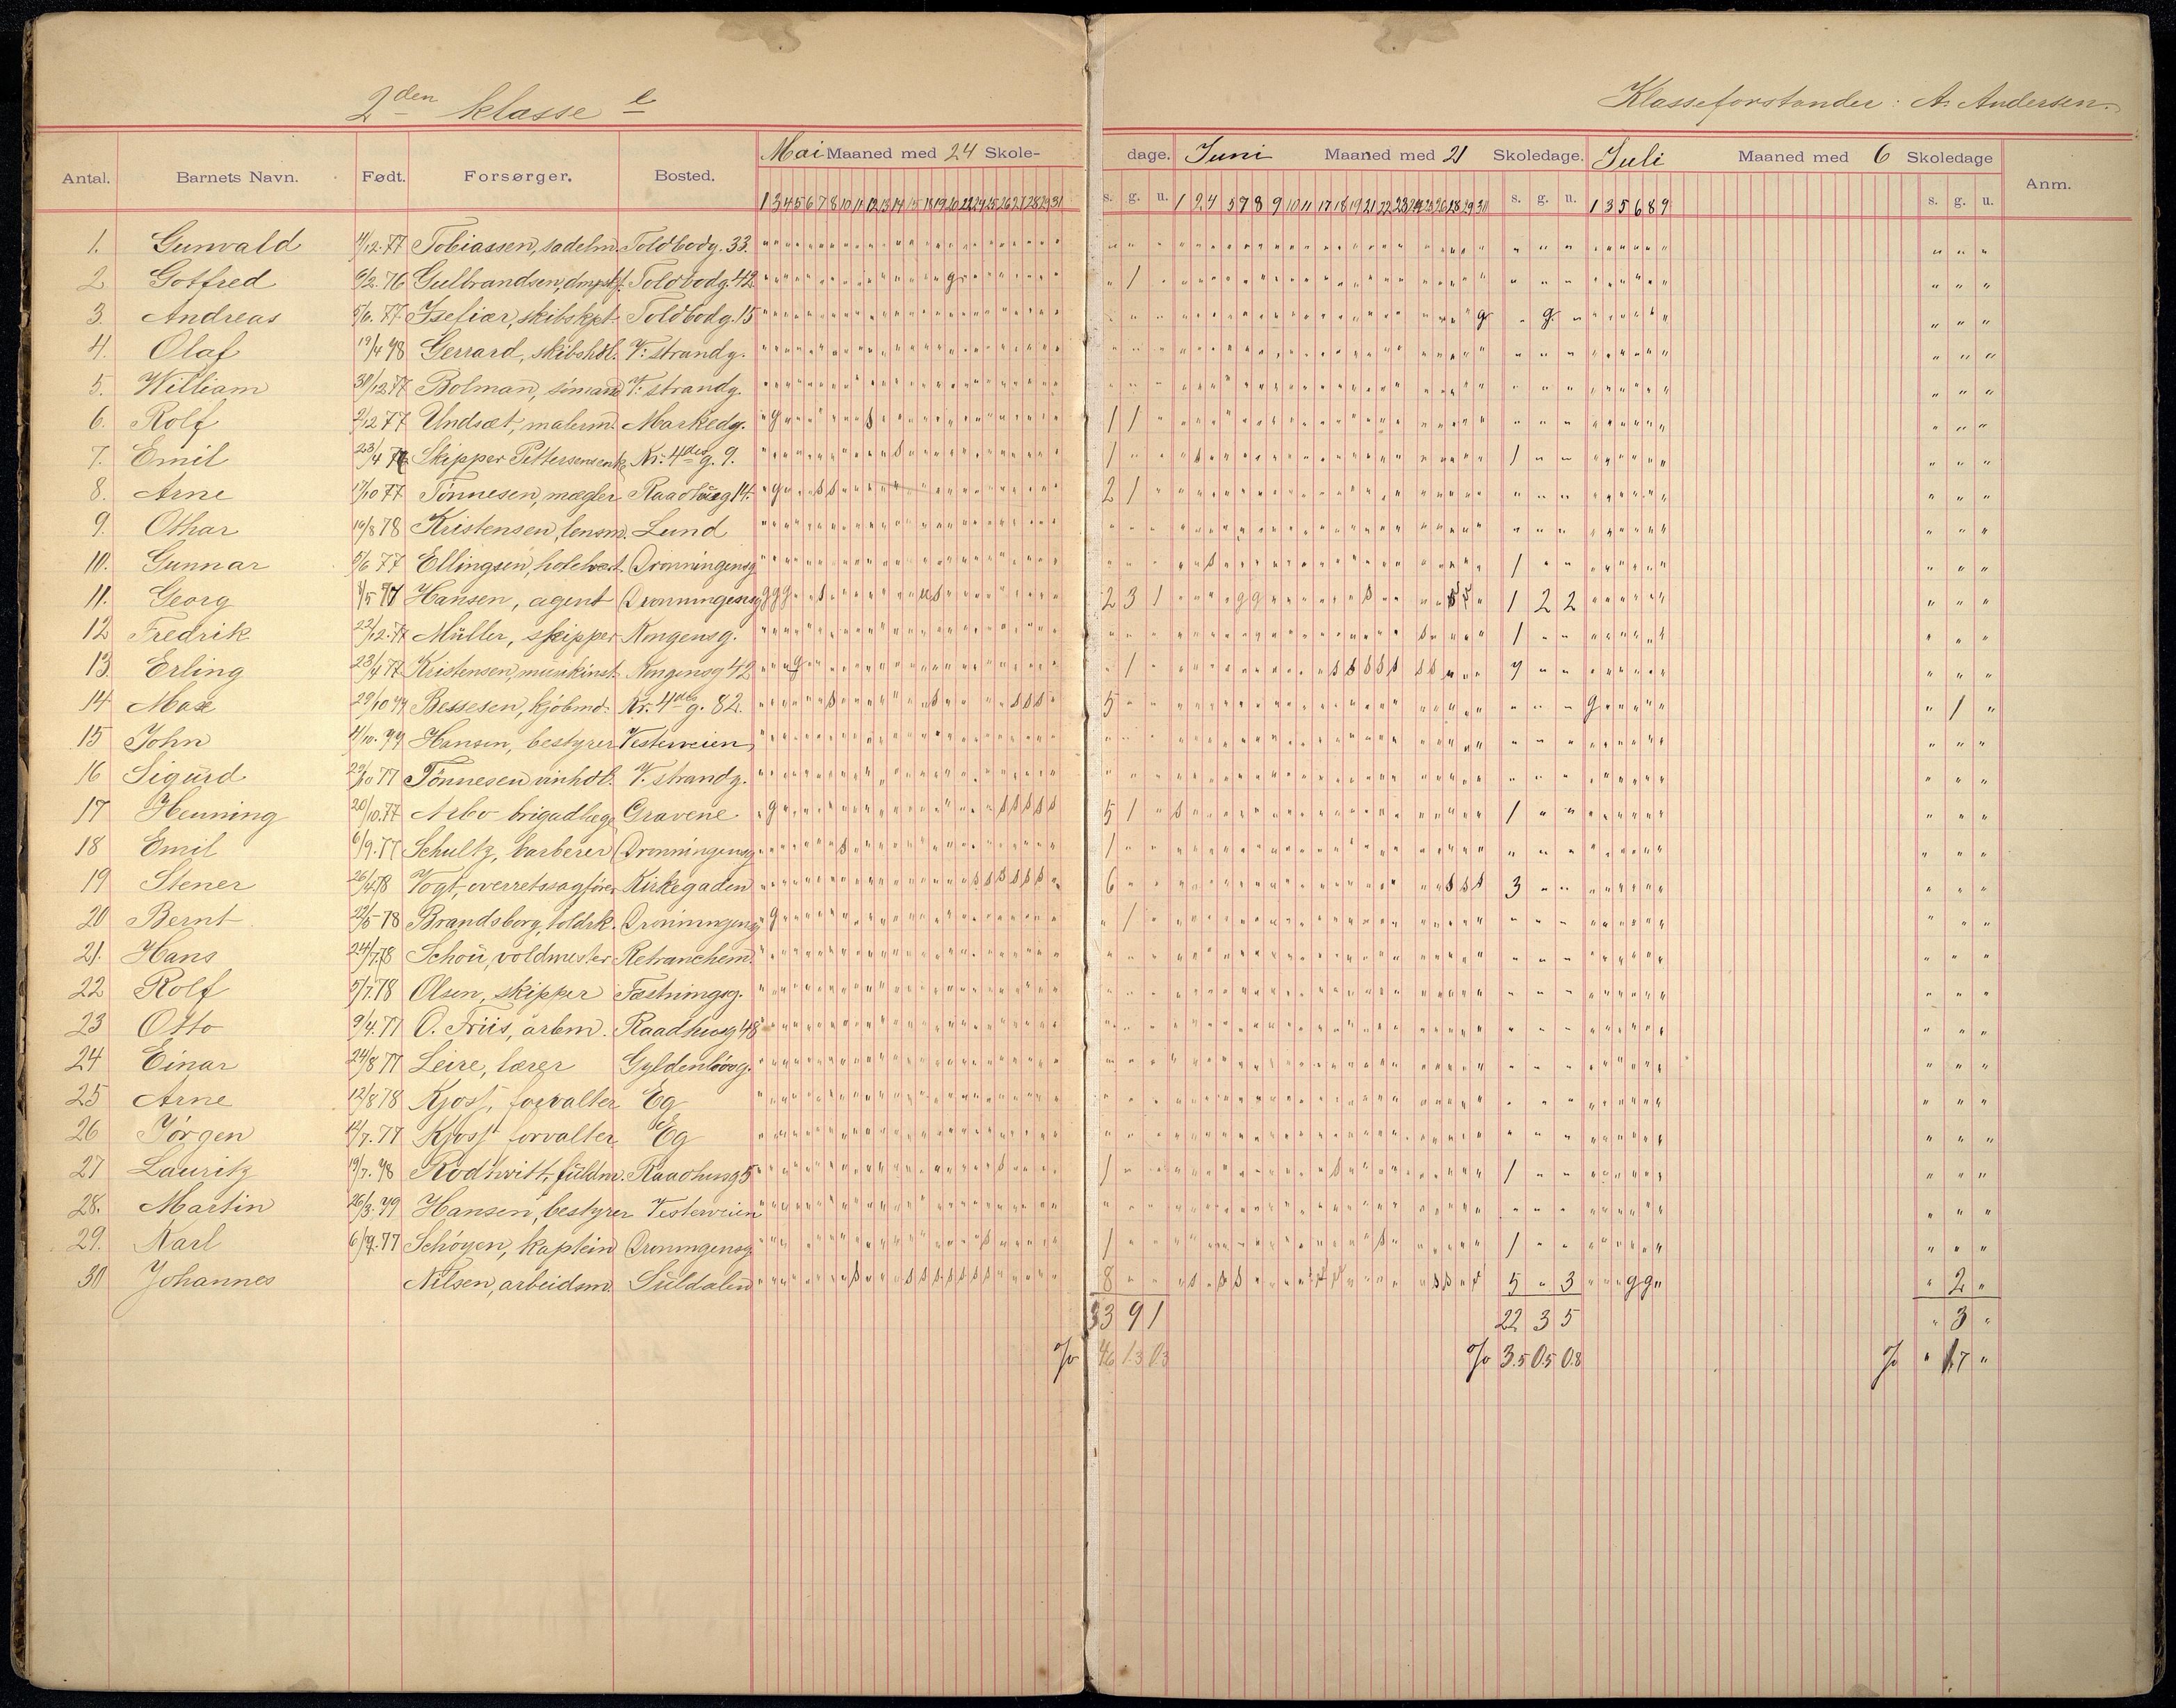 2den klasse e
Klasseforstander: A. Andersen.
Antal. Barnets Navn. Født. Forsørger. Bosted. Mai Maaned med 24 Skole- dage. Juni Maaned med 21 Skoledage. Juli Maaned med 6 Skoledage Anm.
1 3 4 5 6 7 8 10 11 12 13 14 15 18 19 20 22 24 25 26 27 28 29 31 s. g. u. 1 2 4 5 7 8 9 10 11 17 18 19 21 22 23 24 25 26 28 29 30 s. g. u. 1 3 5 6 8 9 s. g. u.
1. Gunvald 11/12.77 Tobiassen, sadelm. Toldbodg. 33.
2 Gotfred 6/2.76 Gulbrandsen, dmpskf. Toldbodg. 42 g " 1 "
3. Andreas 5/6.77 Isefiær, skibskpt. Toldbodg. 15 g " g "
4. Olaf 19/4 78 Gerrard, skibshdl. V: strandg.
5. William 30/12 77 Bolman, sömand V: strandg.
6. Rolf 2/12 77 Undsæt, malerm. Markedg. g s 1 1 "
7. Emil 23/4 Skipper Pettersens enk. Kr: 4des g. 9. s 1 " " s 1 " "
8. Arne 17/10 77 Tönnesen, mægler Raadhusg 14. g s s 2 1 "
9. Othar 19/8 78 Kristensen, lensm. Lund
10. Gunnar 5/6 77 Ellingsen, hotelvært. Dronningensg s 1 " "
11. Georg Hansen, agent Dronningensg g g g s u s 2 3 1 g g s 1 2 2
12 Fredrik 22/12.77 Müller, skipper Kongensg. s 1 " "
13. Erling 23/4 77 Kristensen, musikinst. Kongensg 42 g " 1 " s s s s s s s 7 " "
14 Max 29/10 77 Bessesen, kjöbmd. Kr: 4des g. 82. s s s s s 5 " " g " 1 "
15 John 11/10.77 Hansen, bestyrer Vesterveien
16 Sigurd 29/10 77 Tönnesen vinhdl. V. strandg.
17 Henning 20/10.77 Arbo brigadlæge Gravene g s s s s s 5 1 " s 1 " "
18 Emil 6/9.77 Schultz, barberer Dronningensg s 1 " "
19 Stener 26/4 78 Vogt, overretssagförer Kirkegaden s s s s s s 6 " " s s s 3 " "
20 Bernt 22/5 78 Brandsborg, toldk. Dronningensg g " 1 "
21. Hans 24/7.78 Schou, voldmester Retranchem.
22 Rolf 5/7.78 Olsen, skipper Fæstningsg.
23 Otto 9/4.77 O. Friis, arbm. Raadhusg 48
24 Einar 24/8 77 Leire, lærer Gyldenlövesg.
25 Arne 12/8 78 Kjoss, forvalter Eg
26 Jörgen 12/7.77 Kjoss forvalter Eg
27 Lauritz 19/7.78 Rodtwitt, fuldm. Raadhusg 5 s 1 " " s 1 " "
28. Martin 26/3.79 Hansen, bestyrer Vesterveien
29. Karl 6/9.77 Schöyen, kaptein Dronningensg s 1 " " s 1 " "
30 Johannes Nilsen, arbeidsm. Suldalen s s s s s s s s 8 " " s s s s s 5 " 3 g g " 2 "
33 9 1 22 3 5 " 3 "
% 4.6 1.3 0.3 % 3.5 0.5 0.8 % " 1.7 "